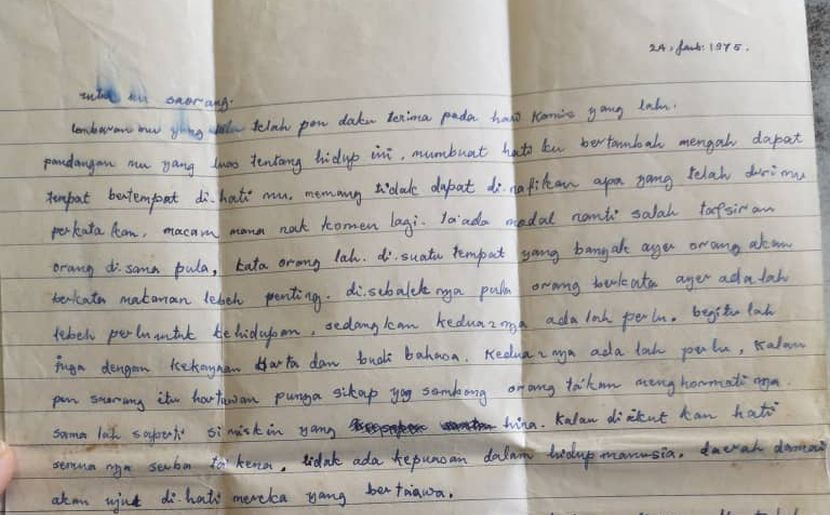 24. Feb: 1975.
untuk mu saorang.
Lembaran mu yang telah pon daku terima pada hari Komis yang lalu.
pandangan mu yang luas tentang hidup ini, mumbuat hati ku bertambah mengah dapat
tempat bertempat di.hati mu, memang tidak dapat di.nafikan apa yang telah diri mu
perkata kan, macam mana nak komen lagi. ta'ada modal nanti salah tafsiran
orang di.sana pula, kata orang lah. di.suatu tempat yang banyak ayer orang akan
berkata makanan lebeh penting. di.sebalek nya pula orang berkata ayer ada lah
lebeh perlu untuk kehidupan, sedang kan kedua2 nya ada lah perlu. begitu lah
juga dengan kekayaan harta dan budi bahasa. Kedua2 nya ada lah perlu, kalau
pun saorang itu hartawan punya sikap yag sombong orang ta'kan menghormati nya.
sama lah saperti si miskin yang hina. Kalau di ikut kan hati
semua nya serba ta'kena, tidak ada kepuasan dalam hidup manusia. daerah damai
akan ujut di.hati mereka yang bertaqwa.